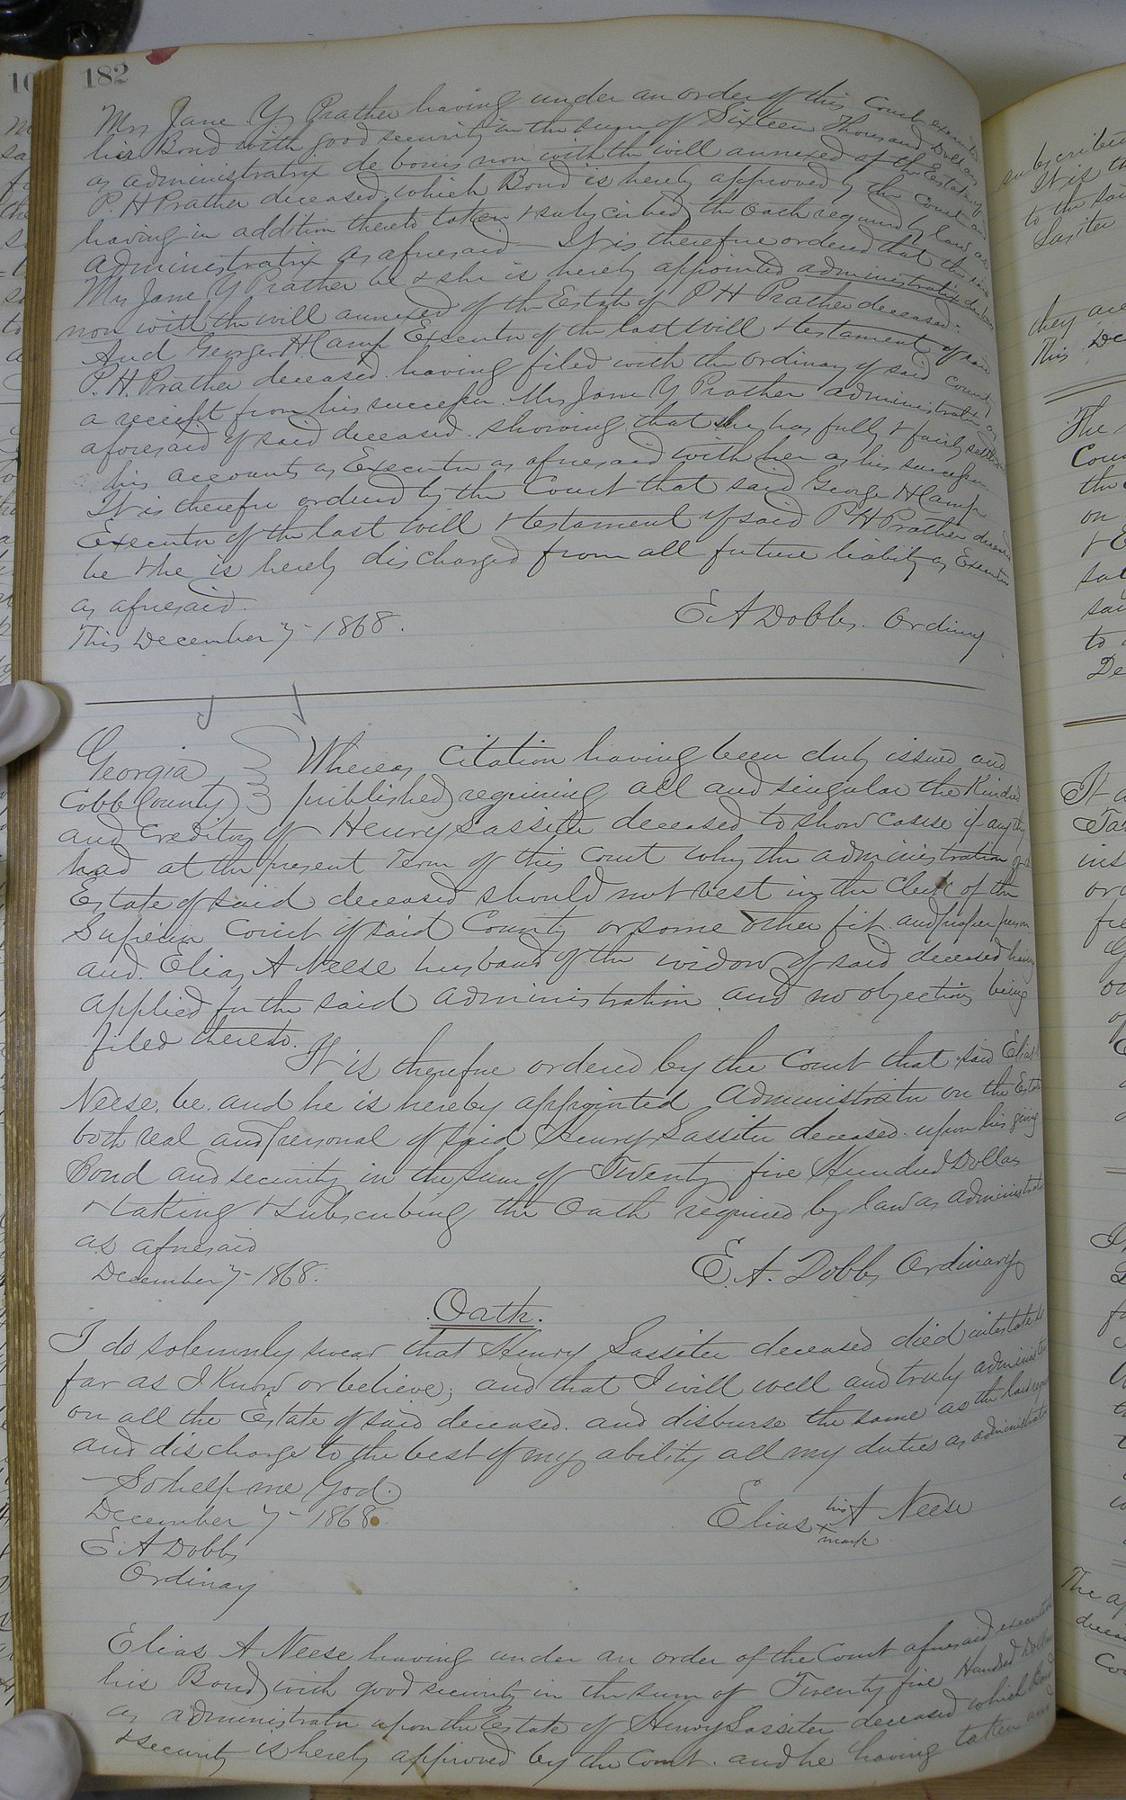 182
Mrs Jane Y Prather having under an order of this Court executed
her Bond with good security in the sum of Sixteen Thousand Doll
as administratrix de bonis non with the will annexed of the Estate of
P H Prather deceased, which Bond is hereby approved by the Court and
having in addition thereto taken & subscribed the Oath required by law as
administratrix as aforesaid It is therefore ordered that the said
Mrs Jane Y Prather be & she is hereby appointed administratrix de bonis
non with the will annexed of the Estate of P H Prather deceased.
And George H Camp Executor of the last will & testament of said
P. H. Prather deceased having filed with the Ordinary of said County
a receipt from his successor Mrs Jane Y Prather administratrix as
aforesaid of said deceased. showing that she has fully & fairly settled
his accounts as Executor as aforesaid with her as his successor
It is therefore ordered by the Court that said George H Camp
Executor of the last Will & testament of said P H Prather deceased
be & he is hereby discharged from all future liability as Executor
as aforesaid.
This December 7- 1868. E. A Dobbs. Ordinary
Georgia Whereas Citation having been duly issued and
Cobb County published requiring all and singular the Kindred
and Creditors of Henry Lassiter deceased to show cause if any they
had at the present Term of this Court why the administration of the
Estate of said deceased should not vest in the Clerk of the
Superior Court of said County or some other fit and proper person
and Elias A Neese husband of the widow of said deceased having
applied for the said administration and no objections being
filed thereto.
It is therefore ordered by the Court that said Elias A
Neese. be. and he is hereby appointed Administrator on the Estate
both real and personal of said Henry Lassiter deceased. upon his giving
Bond and security in the sum of Twenty five Hundred Dollars
& taking & subscribing the Oath required by law as administrator
as aforesaid
December 7- 1868. E. A. Dobbs Ordinary
Oath.
I do solemnly swear that Henry Lassiter deceased died intestate so
far as I know or believe; and that I will well and truly administer
on all the Estate of said deceased. and disburse the same as the law requires
and discharge to the best of my ability all my duties as administrator
So help me God.
December 7- 1868. Elias his A Neese
x mark
E A Dobbs
Ordinary
Elias A Neese having under an order of the Court aforesaid executed
his Bond with good security in the sum of Twenty five Hundred Dollars
as administrator upon the Estate of Henry Lassiter deceased which Bond
& security is hereby approved by the Court. and he having taken and